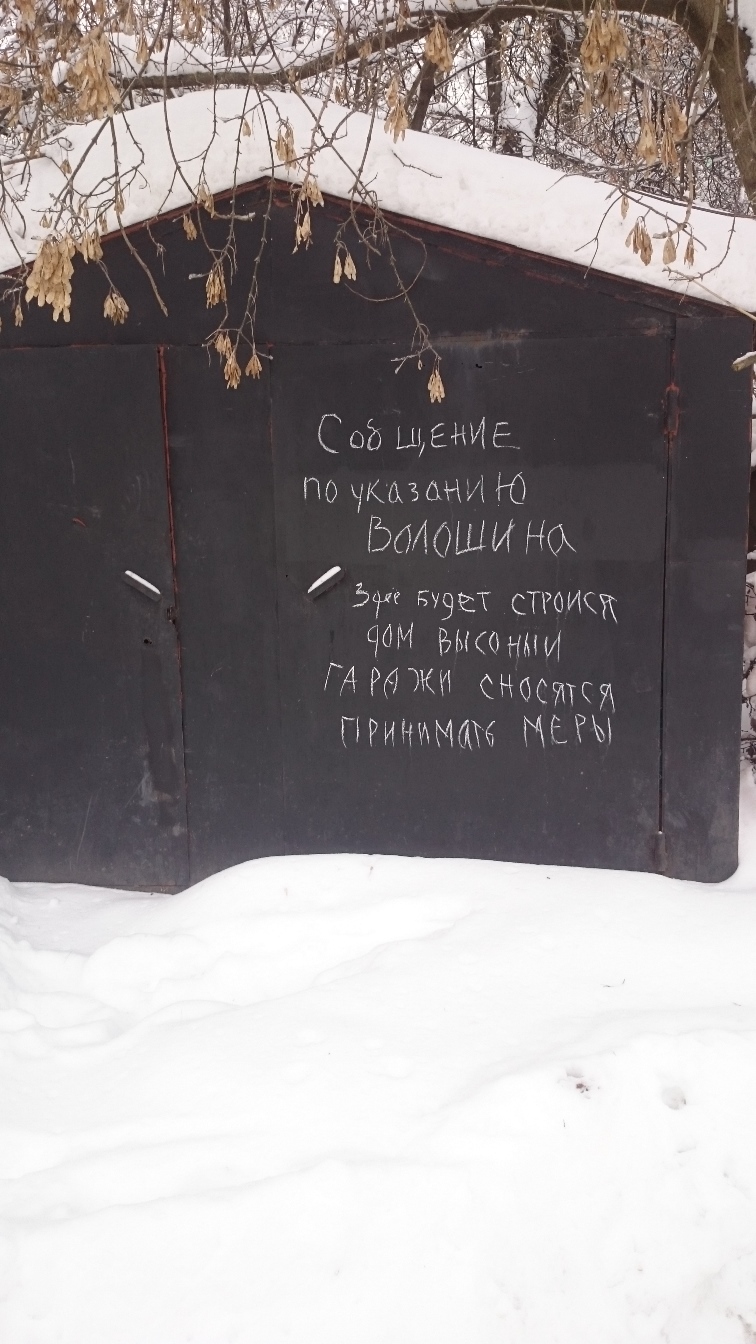 Собщение
по указанию
Волошина
Здес будет строися
дом высокый
гаражи сносятся
принимать меры